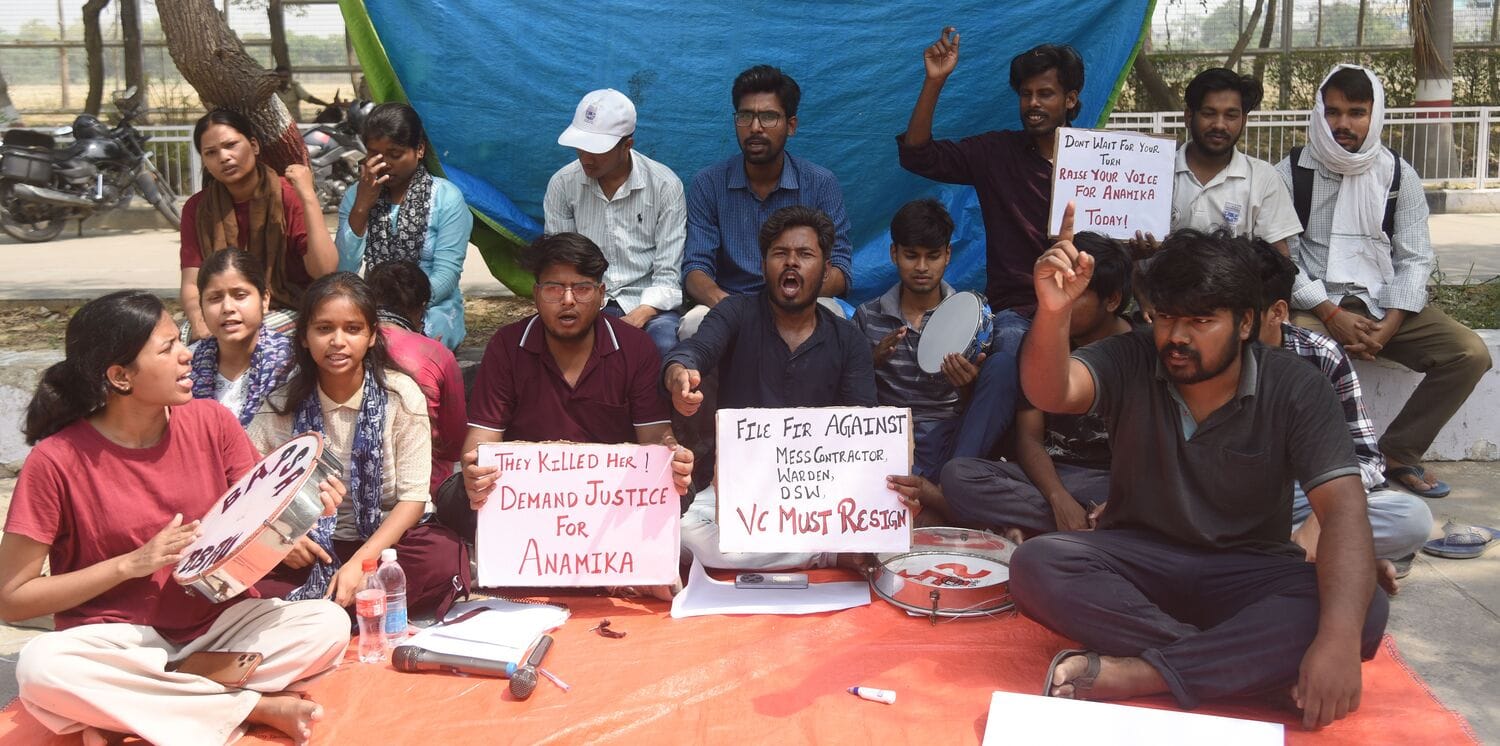 DONT WAIT FOR YOUR
TURN
RAISE YOUR VOICE
FOR ANAMIKA
TODAY!
THEY KILLED HER!
DEMAND JUSTICE
FOR
ANAMIKA
FILE FIR AGAINST
MESS CONTRACTOR,
WARDEN,
DSW,
VC MUST RESIGN
BAPSA
BBAU